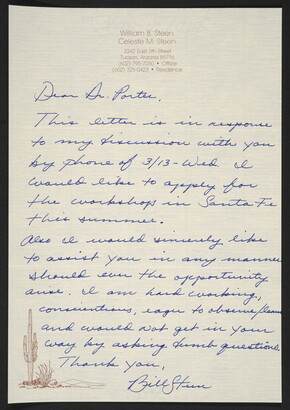 William B. Steen
Celeste M. Steen
2242 East 5th Street
Tucson, Arizona 85716
(602) 795-7250 • Office
(602) 325-0423 • Residence
Dear Dr. Porter,
This letter is in response
to my discussion with you
by phone of 3/13-Wed. I
would like to apply for
the workshop in Santa Fe
this summer.
Also I would sincerely like
to assist you in any manner
should ever the opportunity
arise. I am hard working,
conscientious, eager to observe/learn
and would not get in your
way by asking dumb questions.
Thank you,
Bill Steen